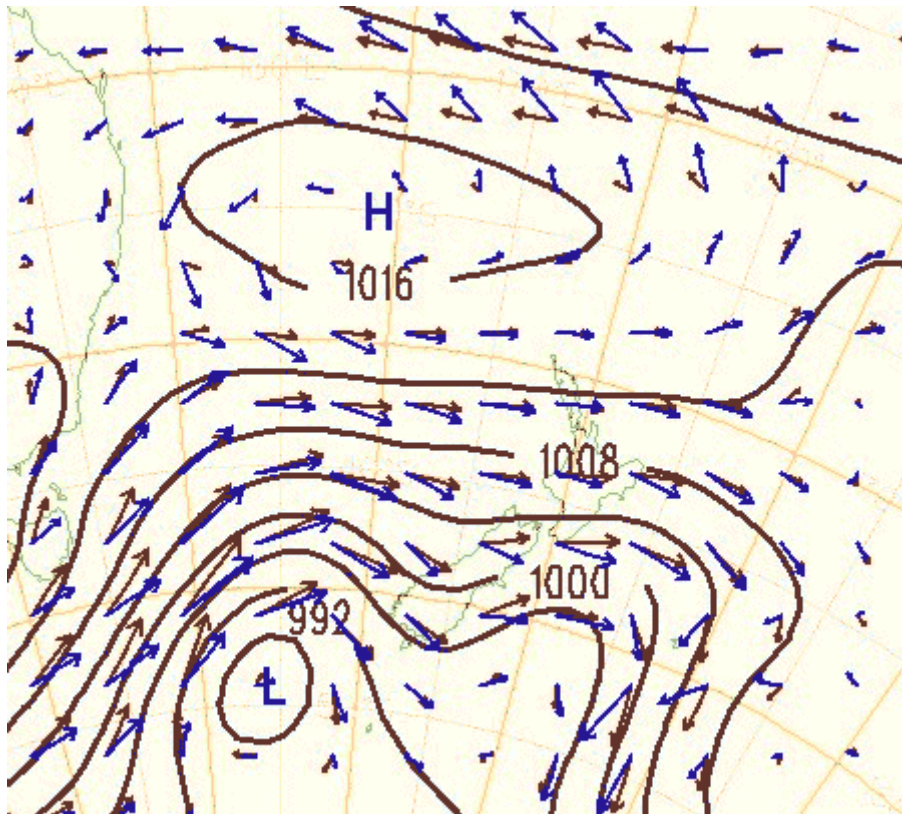 H
1016
1008
1000
992
L